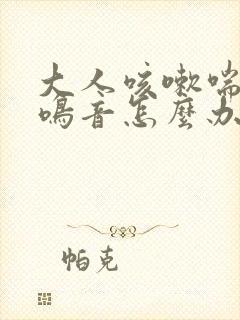 大人咳嗽喘
鳴音怎麼办
帕克